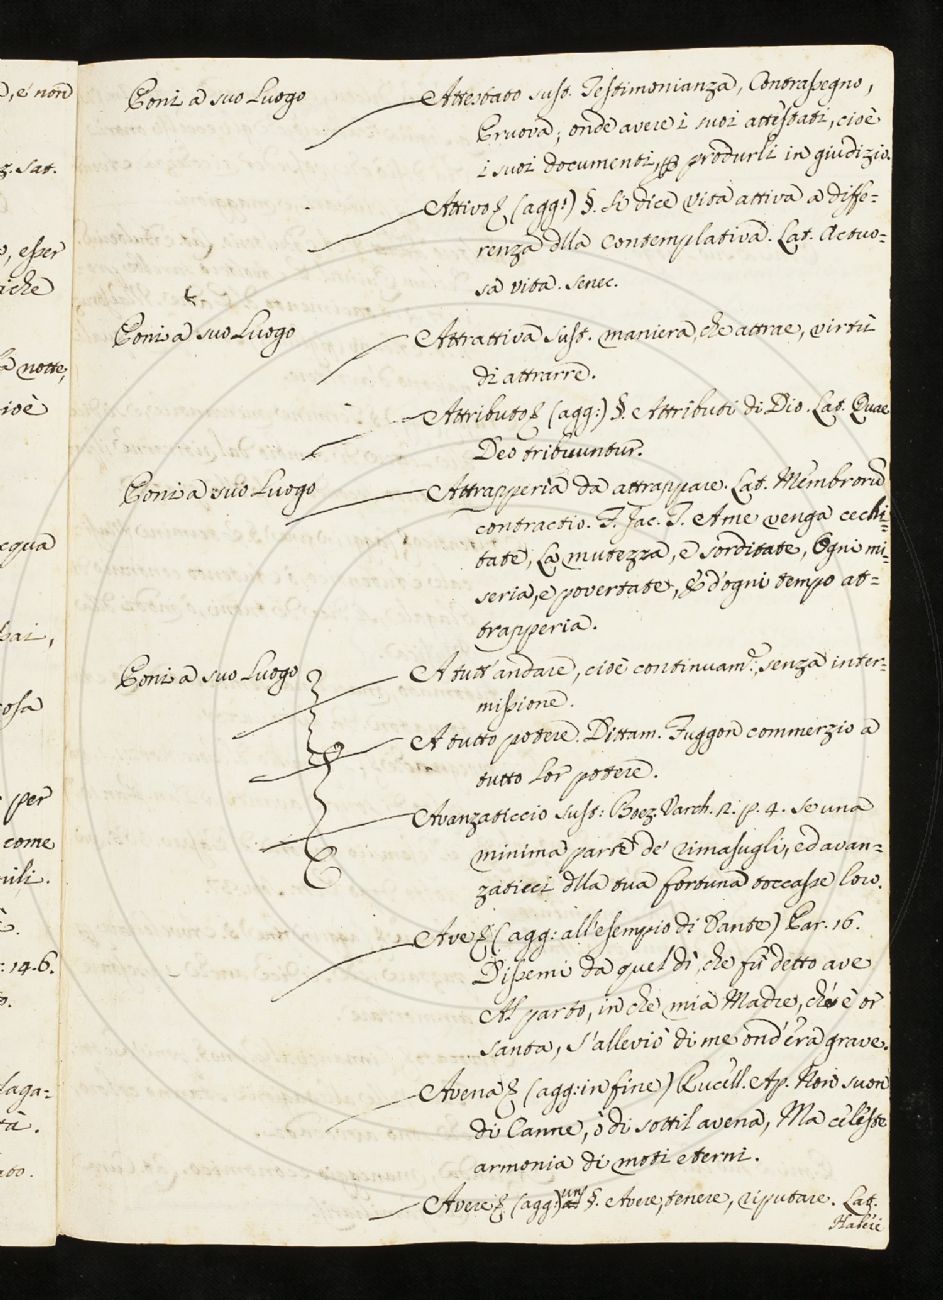 Poni a suo Luogo
Attestato sust. Testimonianza, Contrassegno,
Pruova; onde avere i suoi attestati, cioè
i suoi documenti, p produrli in giudizio.
Attivo (agg:) §. Si dice vita attiva a diffe=
renza dlla Contemplativa. Lat. Actuo=
sa vita. Senec.
Poni a suo Luogo
Attrattiva Sust. maniera, che attrae, virtù
di attrarre.
Attributo (agg:) §. Attributi di Dio. Lat. Quae
Deo tribuuntur.
Poni a suo Luogo
Attrapperia da attrappare. Lat. Membrorū
contractio. F. Jac. T. A me venga cechi=
tate, La mutezza, e sorditate, Ogni mi=
seria, e povertate, & d'ogni tempo at=
trapperia.
Poni a suo Luogo
A tutt'andare, cioè continuam.e, senza inter=
missione.
A tutto potere. Dittam. Fuggon commerzio a
tutto lor potere.
Avanzaticcio sust: Boez. Varch. 2. p. 4. se una
minima parte de' rimasugli, ed avan=
zaticci dlla tua fortuna toccasse loro.
Ave (agg: all'esempio di Dante) Par. 16.
Dissemi da quel dì, che fù detto ave
Al parto, in che mia Madre, ch'è or
santa, S'alleviò di me ond'era grave.
Avena (agg: in fine) Rucell. Ap. Non suon
di Canne, ò di sottil avena, Ma celeste
armonia di moti eterni.
Avere (agg:) un §. Avere, tenere, riputare. Lat.
Habere
, è non
Sat.
, esser
iche
notte;
ioè
cqua
osa
per
come
ili.
: 146.